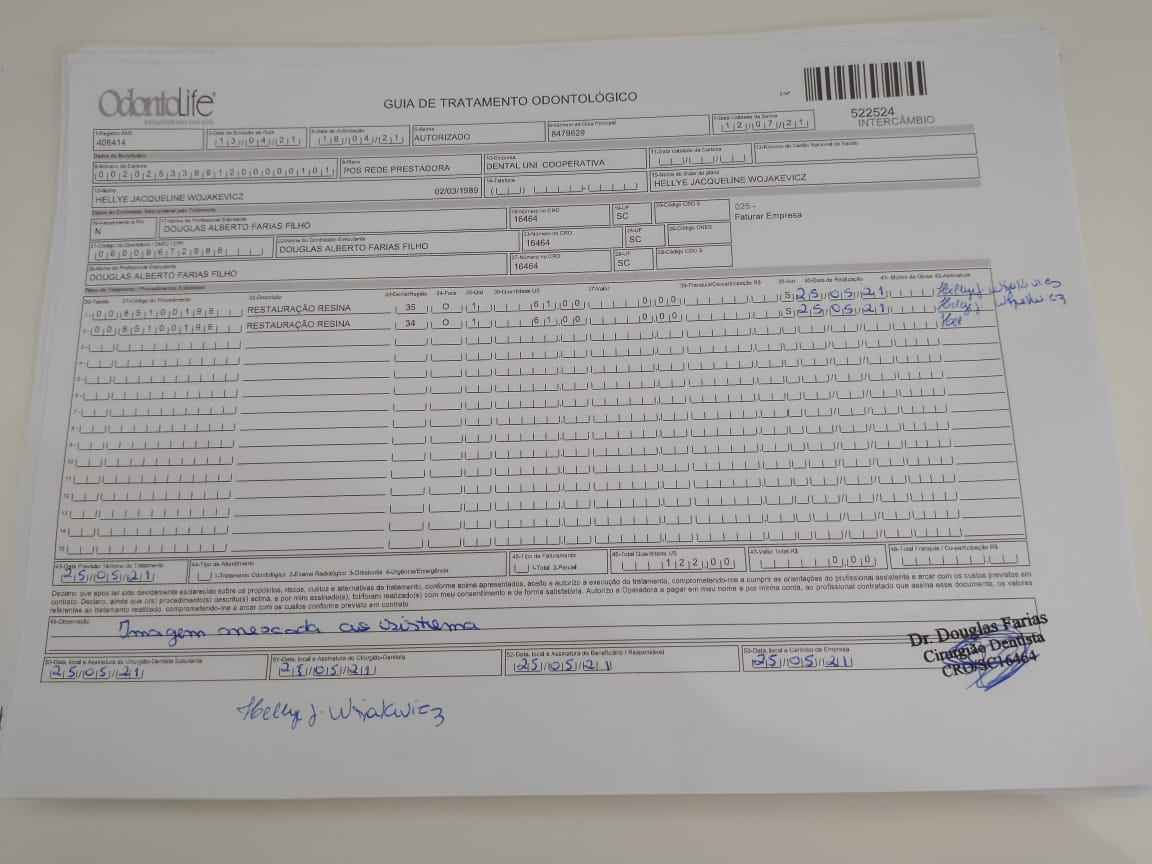 OdontoLife
GUIA DE TRATAMENTO ODONTOLÓGICO
2-Nº
522524
INTERCÂMBIO
1-Registro ANS
406414
3-Data de Emissão da Guia
13/04/21
4-Data de Autorização
16/04/21
5-Senha
AUTORIZADO
6-Número da Guia Principal
8479620
7-Data Validade da Senha
12/07/21
Dados do Beneficiário
8-Número da Carteira
00202533991200000101
9-Plano
POS REDE PRESTADORA
10-Empresa
DENTAL UNI COOPERATIVA
11-Data Validade da Carteira
12-Número do Cartão Nacional de Saúde
13-Nome
HELLYE JACQUELINE WOJAKEVICZ
02/03/1989
14-Telefone
15-Nome do titular do plano
HELLYE JACQUELINE WOJAKEVICZ
Dados do Contratado Responsável pelo Tratamento
16-Atendimento a RN
N
17-Nome do Profissional Solicitante
DOUGLAS ALBERTO FARIAS FILHO
18-Número no CRO
16464
19-UF
SC
20-Código CBO S
025 -
Faturar Empresa
21-Código na Operadora / CNPJ / CPF
06009672988
22-Nome do Contratado Executante
DOUGLAS ALBERTO FARIAS FILHO
23-Número no CRO
16464
24-UF
SC
25-Código CNES
26-Nome do Profissional Executante
DOUGLAS ALBERTO FARIAS FILHO
27-Número no CRO
16464
28-UF
SC
29-Código CBO S
Plano de Tratamento / Procedimentos Solicitados
30-Tabela 31-Código do Procedimento 32-Descrição 33-Dente/Região 34-Face 35-Qtd 36-Quantidade US 37-Valor 38-Franquia/Co-participação R$ 39-Aut 40-Data de Realização 41- Motivo da Glosa 42-Assinatura
1- 00 85100196 RESTAURAÇÃO RESINA 35 O 1 6100 000 S 25/05/21 Hellye J Wojakvicz
2- 00 85100196 RESTAURAÇÃO RESINA 34 O 1 6100 000 S 25/05/21 Helly J. Wojakvicz
3- Hel
4-
5-
6-
7-
8-
9-
10
11
12
13
14
15
43-Data Previsão Término do Tratamento
25/05/21
44-Tipo de Atendimento
1-Tratamento Odontológico 2-Exame Radiológico 3-Ortodontia 4-Urgência/Emergência
45-Tipo de Faturamento
1-Total 2-Parcial
46-Total Quantidade US
12200
47-Valor Total R$
000
48-Total Franquia / Co-participação R$
Declaro, que após ter sido devidamente esclarecido sobre os propósitos, riscos, custos e alternativas de tratamento, conforme acima apresentados, aceito e autorizo a execução do tratamento, comprometendo-me a cumprir as orientações do profissional assistente e arcar com os custos previstos em
contrato. Declaro, ainda que o(s) procedimento(s) descrito(s) acima, e por mim assinado(s), foi/foram realizado(s) com meu consentimento e de forma satisfatória. Autorizo a Operadora a pagar em meu nome e por minha conta, ao profissional contratado que assina esse documento, os valores
referentes ao tratamento realizado, comprometendo-me a arcar com os custos conforme previsto em contrato.
49-Observação
Imagem anexada ao sistema
50-Data, local e Assinatura do Cirurgião-Dentista Solicitante
25/05/21
51-Data, local e Assinatura do Cirurgião-Dentista
25/05/21
52-Data, local e Assinatura do Beneficiário / Responsável
25/05/21
53-Data, local e Carimbo da Empresa
25/05/21
Dr. Douglas Farias
Cirurgião Dentista
CRO/SC16464
Helly J. Wojakvicz